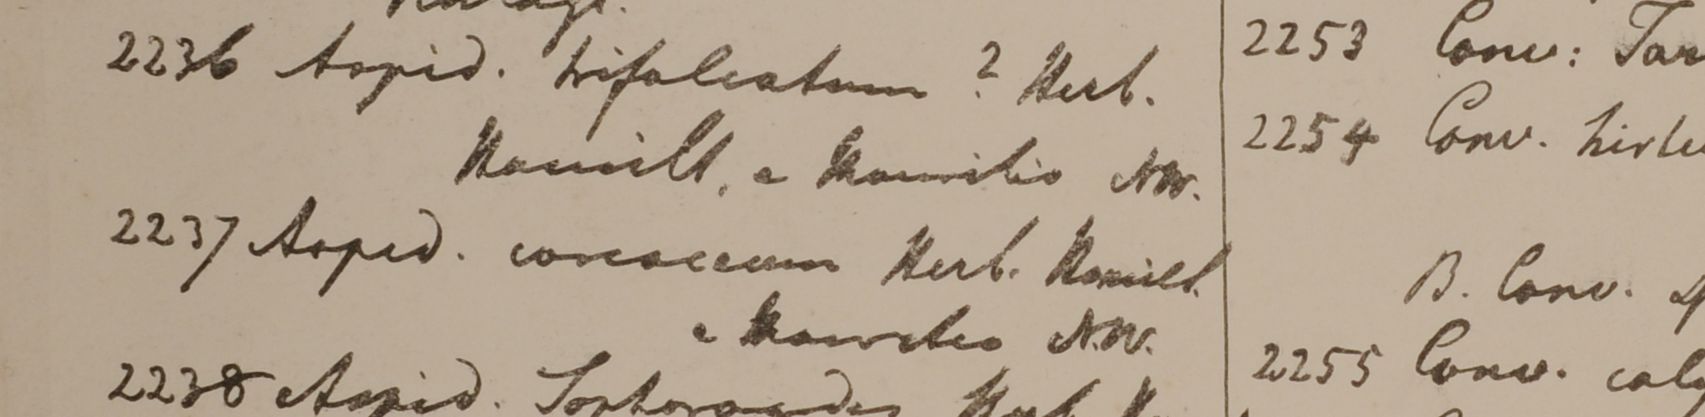 2236 Aspid. trifoliatum? Herb.
Hamilt. e Mauritio N.W.
2237 Aspid. coriaceum Herb. Hamilt.
e Mauritio N.W.
2238 Aspid. Sophoroides Herb. H
2253 Conv: Tar
2254 Conv. hirtu
B. Conv.
2255 Conv. caly